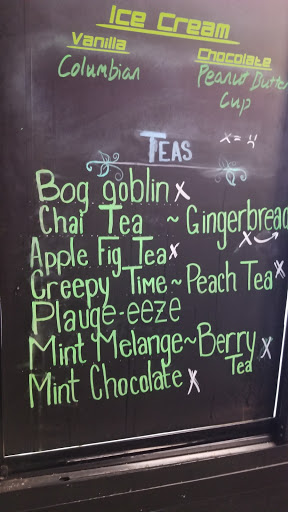 Ice Cream
Vanilla
Columbian
Chocolate
Peanut Butter
Cup
x = :(
TEAS
Bog goblin x
Chai Tea ~ Gingerbread
x
Apple Fig Tea x
Creepy Time ~ Peach Tea x
Plauge-eeze
Mint Melange ~ Berry Tea x
Mint Chocolate x